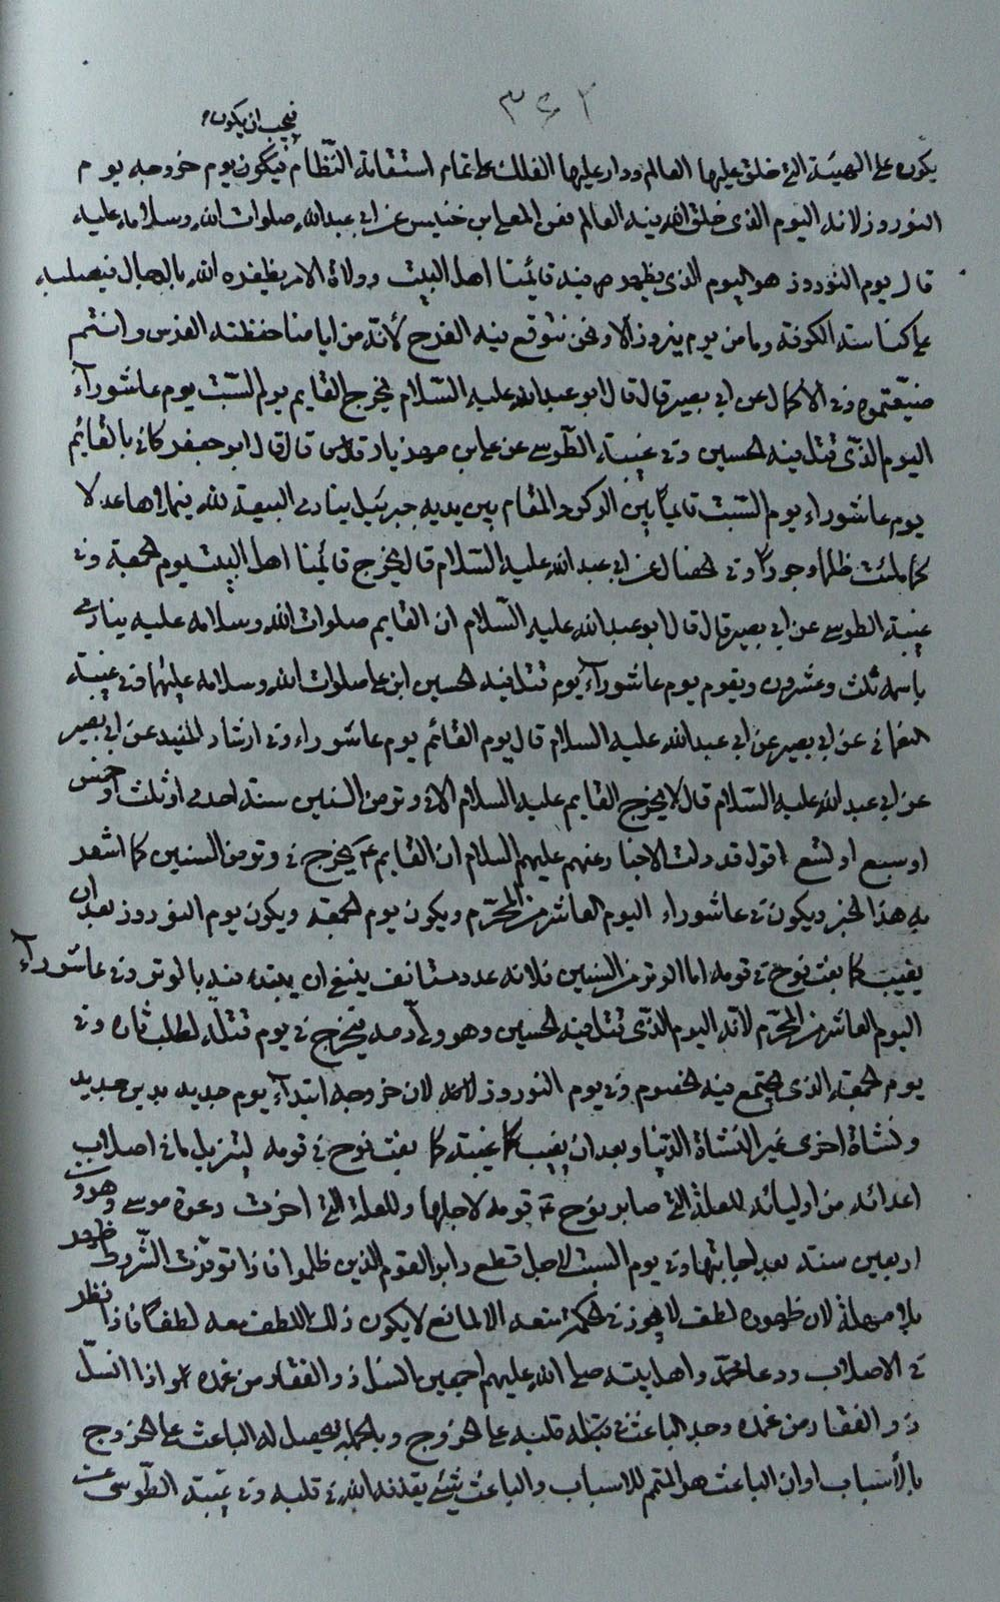 ٣٦٢
فيجب ان يكون
يكون على الهيئة التي خلق عليها العالم ودار عليها الفلك على تمام استقامة النّظام فيكون يوم خروجه يوم
النوروز لانه اليوم الذى خلق الله فيه العالم فعن المعلى بن خنيس عن ابي عبدالله صلوات الله وسلامه عليه
قال يوم النوروز هو اليوم الذى يظهر فيه قائمنا اهل البيت وولاة الامر يظفره الله بالدجال فيصلبه
على كناسة الكوفة وما من يوم نيروز الا ونحن نتوقع فيه الفرج لأنّه من ايامنا حفظته الفرس وانتم
ضيّعتموه وفي الاكمال عن ابي بصير قال قال ابو عبدالله عليه السّلام يخرج القايم يوم السّبت يوم عاشوراء
اليوم الذّى قتل فيه الحسين وفي غيبة الطّوسي عن علي بن مهزيار قال قال ابو جعفر كاني بالقائم
يوم عاشوراء يوم السّبت قايمًا بين الركن والمقام بين يديه جبرئيل ينادى البيعة لله فيملاها عدلا
كما ملئت ظلما وجورًا وفي الخصال عن ابي عبدالله عليه السّلام قال يخرج قائمنا اهل البيت يوم الجمعة وفي
غيبة الطوسي عن ابي بصير قال قال ابو عبدالله عليه السّلام ان القايم صلوات الله وسلامه عليه ينادى
باسمه ثلث وعشرين ويقوم يوم عاشورآء يوم قتل فيه الحسين ابن علي صلوات الله وسلامه عليهما وفي غيبة
النعماني عن ابي بصير عن ابي عبدالله عليه السلام قال يوم القائم يوم عاشوراء وفي ارشاد المفيد عن ابي بصير
عن ابي عبدالله عليه السّلام قال لا يخرج القايم عليه السلام الا في وتر من السنين سنة احدى او ثلث او خمس
او سبع او تسع اقول قد دلت الاخبار عنهم عليهم السلام ان القايم ع يخرج في وتر من السنين كما اشعر
به هذا الخبر ويكون في عاشوراء اليوم العاشر من المحرّم ويكون يوم الجمعة ويكون يوم النوروز بعد ان
يغيب كما بعث نوح في قومه اما الوتر من السنين فلانه عدد مستانف ينبغي ان يبتدء فيه بالوتر وفي عاشورآء
اليوم العاشر من المحرّم لانّه اليوم الذّى قتل فيه الحسين وهو ولي دمه فيخرج في يوم قتله لطلب ثاره وفي
يوم الجمعة الذى يجتمع فيه الخصوم وفي يوم النوروز لان خروجه ابتدآء يوم جديد بدين جديد
ونشاة اخرى غير النشاة الدّنيا وبعد ان يغيب كما غيبته كما بعث نوح في قومه ليتزيل ما في اصلاب
اعدائه من اوليائه للعلة التي صابر نوح ع قومه لاجلها وللعلة التي اخرت دعوة موسى وهرون
اربعين سنة بعد اجابتها وفي يوم السبت لاجل قطع دابر القوم الذين ظلموا فاذا توفّرت الشّروط ظهر
بلا مهلة لان ظهوره لطف لا يجوز في الحكمة منعه الا لمانع لا يكون ذلك اللطف معه لطفًا فاذا نظر
في الاصلاب ودعا محمّد واهل بيته صلى الله عليهم اجمعين انسل ذو الفقار من غمده او اذا انسلّ
ذو الفقار من غمده وجد الباعث في قلبه على الخروج وبالجملة يحصل له الباعث على الخروج
بالأسباب او ان الباعث هو المتمم للاسباب والباعث شئ يقذفه الله في قلبه وفي غيبة الطّوسي عن